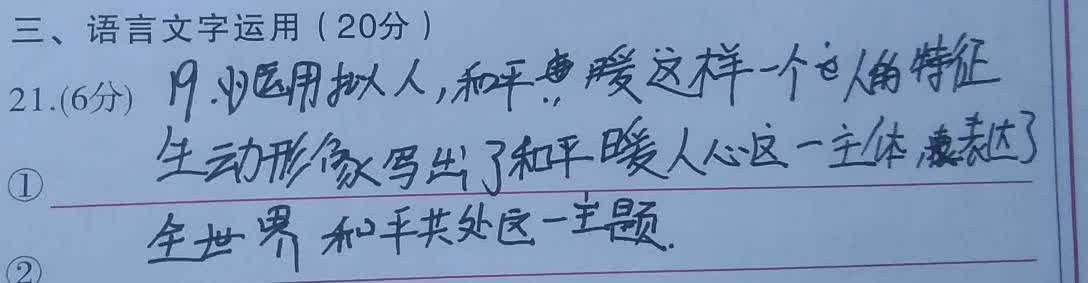 三、语言文字运用（20分）
21.(6分) 19.①运用拟人,和平 暖这样一个 人的特征
生动形象写出了和平暖人心这一主体,表达了
①
全世界和平共处这一主题.
②